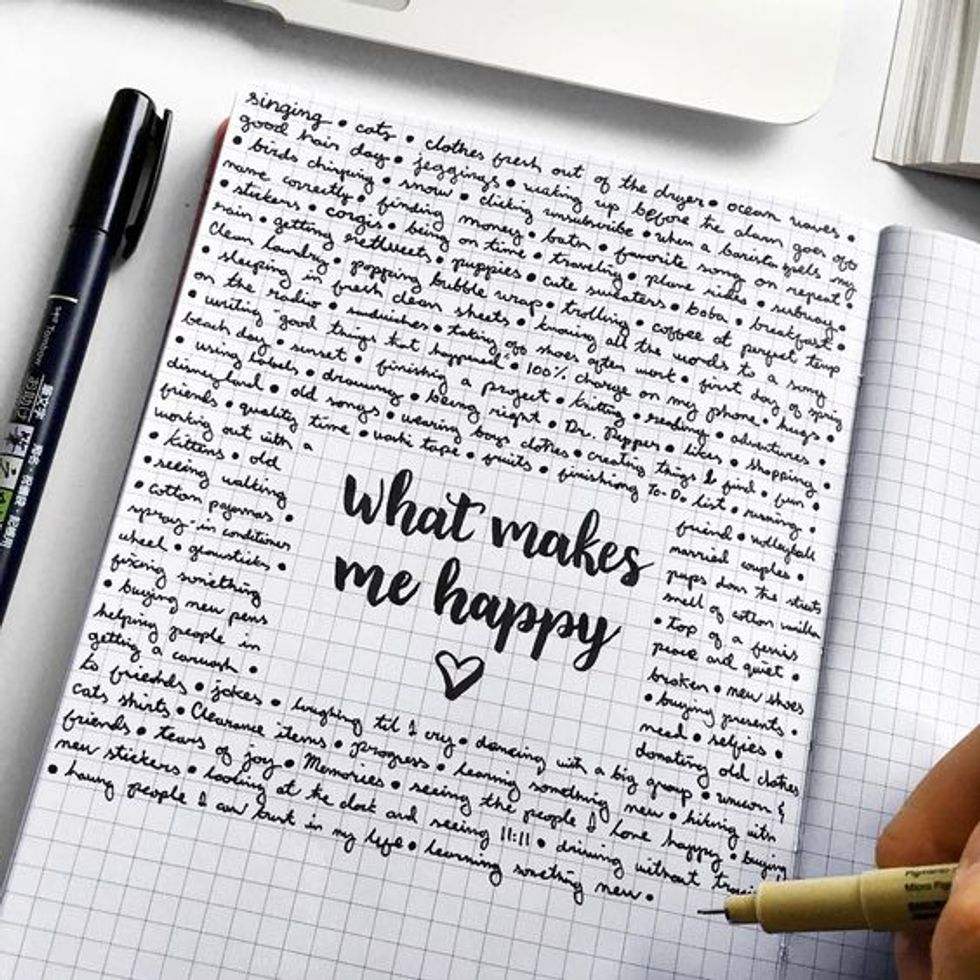 singing • cats • clothes fresh out of the dryer • ocean waves •
good hair day • jeggings • waking up before the alarm goes off
• birds chirping • snow • clicking unsubscribe • when a barista spells my
name correctly • finding money • • favorite song on repeat •
• stickers • corgis • being on time • traveling • plane rides • subway •
rain • getting retweets • puppies • cute sweaters • boba • breakfast •
Clean laundry • popping bubble wrap • trolling • coffee at perfect temp
• sleeping in fresh clean sheets • knowing all the words to a song
on the radio • sandwiches • taking off shoes after work • first day of spring
• writing "good things that happened" • 100% charge on my phone • hugs •
beach day • sunset • finishing a project • knitting • reading • adventures •
• using labels • drawing • being right • Dr. Pepper • likes • shopping •
disneyland • old songs • wearing boys clothes • creating things I find • fun •
friends • quality time • washi tape • fruits • finishing To-Do list • running •
working out with a friend • volleyball
• kittens • old married couples •
• seeing walking pups down the streets
• cotton pajamas • smell of cotton vanilla
spray-in conditioner • top of a ferris
wheel • glowsticks • peace and quiet •
fixing something broken • new shoes
• buying new pens • buying presents •
helping people in need • selfies •
getting a carwash • donating old clothes
what makes
me happy
to friends • jokes • laughing til I cry • dancing with a big group • unicorn &
cats shirts • Clearance items • progress • learning something new • hiking with
friends • tears of joy • Memories • seeing the people I love happy • buying
new stickers • looking at the clock and seeing 11:11 • driving without
• having people I can trust in my life • learning something new •
Tombow